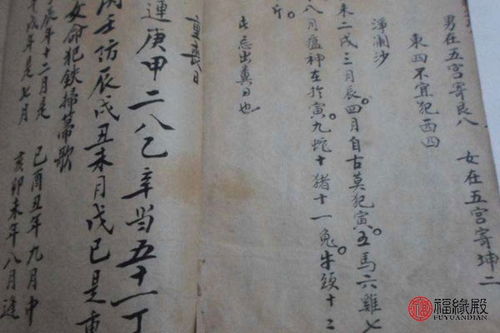 男在五宫寄艮八 女在五宫寄坤二
東四不宜犯西四
未二戌三月辰四月自古莫犯寅五馬六雞七
八月瘟神在於寅九蛇十猪十一兔牛頭十二
斤
此忌出糞日也
重喪日
連庚甲二八乙辛当五十一丁
丙壬防辰戌丑未月戊己是重
女命犯鉄掃帚歌
辰年十二月是 巳酉丑年九月中
戌年是七月 亥卯未年八月逢
福緣殿
FUYUANDIAN